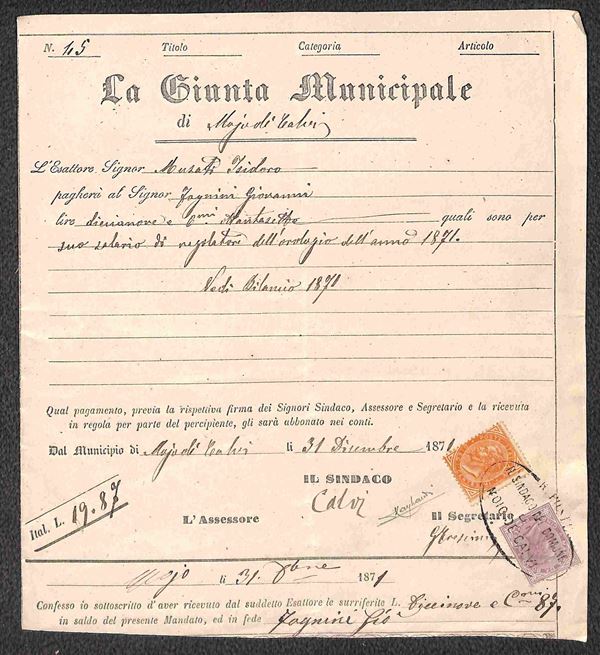 N. 15 Titolo Categoria Articolo
La Giunta Municipale
di Mojo de' Calvi
L'Esattore Signor Musati Isidoro
pagherà al Signor Fognini Giovanni
lire diciannove e Cmi quali sono per
suo salario di regolatore dell'orologio dell'anno 1871.
Vedi Bilancio 1870
Qual pagamento, previa la rispettiva firma dei Signori Sindaco, Assessore e Segretario e la ricevuta
in regola per parte del percipiente, gli sarà abbonato nei conti.
Dal Municipio di Mojo de' Calvi li 31 Dicembre 1871
IL SINDACO
Calvi
Ital. L. 19.87
L'Assessore Il Segretario
IL SINDACO DEL COMUNE
MOIO DE CALVI
Mojo li 31. Xbre 1871
Confesso io sottoscritto d'aver ricevuto dal suddetto Esattore le surriferite L. Diecinove e Cmi 87.
in saldo del presente Mandato, ed in fede Fognini Gio